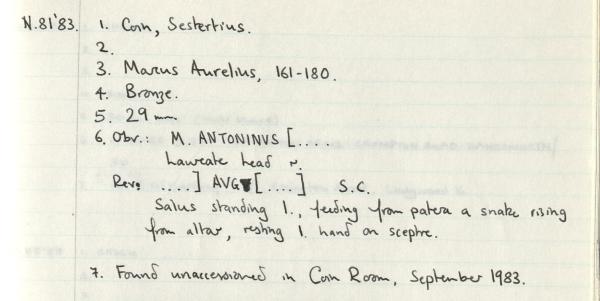 N.81'83. 1. Coin, Sestertius.
2.
3. Marcus Aurelius, 161-180.
4. Bronze.
5. 29 mm.
6. Obv.: M. ANTONINVS [....
Laureate head r.
Rev: ....] AVG [....] S.C.
Salus standing l., feeding from patera a snake rising
from altar, resting l. hand on sceptre.
7. Found unaccessioned in Coin Room, September 1983.